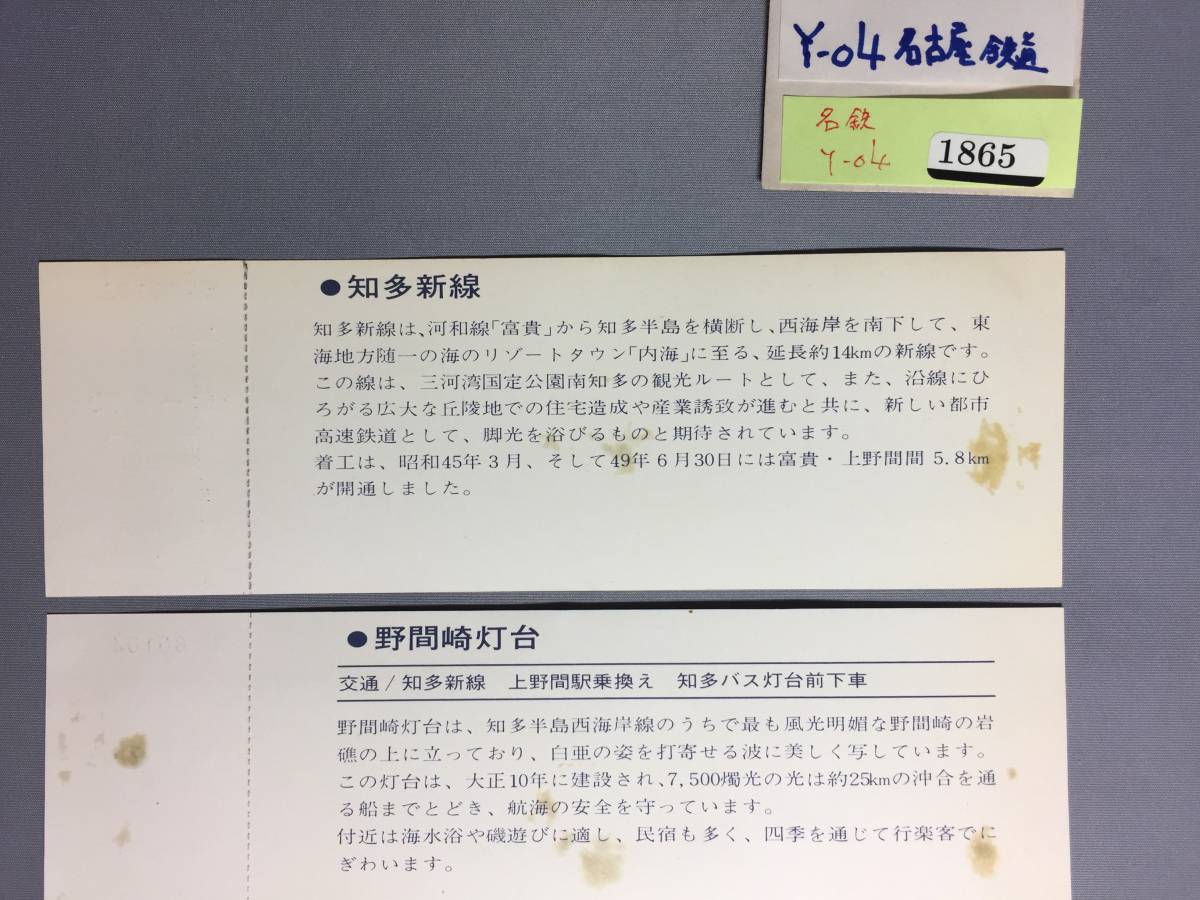 Y-04 名古屋鉄道
名鉄
Y-04
1865
●知多新線
知多新線は、河和線「富貴」から知多半島を横断し、西海岸を南下して、東
海地方随一の海のリゾートタウン「内海」に至る、延長約14kmの新線です。
この線は、三河湾国定公園南知多の観光ルートとして、また、沿線にひ
ろがる広大な丘陵地での住宅造成や産業誘致が進むと共に、新しい都市
高速鉄道として、脚光を浴びるものと期待されています。
着工は、昭和45年3月、そして49年6月30日には富貴・上野間間5.8km
が開通しました。
●野間崎灯台
交通/知多新線 上野間駅乗換え 知多バス灯台前下車
野間崎灯台は、知多半島西海岸線のうちで最も風光明媚な野間崎の岩
礁の上に立っており、白亜の姿を打寄せる波に美しく写しています。
この灯台は、大正10年に建設され、7,500燭光の光は約25kmの沖合を通
る船までとどき、航海の安全を守っています。
付近は海水浴や磯遊びに適し、民宿も多く、四季を通じて行楽客でに
ぎわいます。